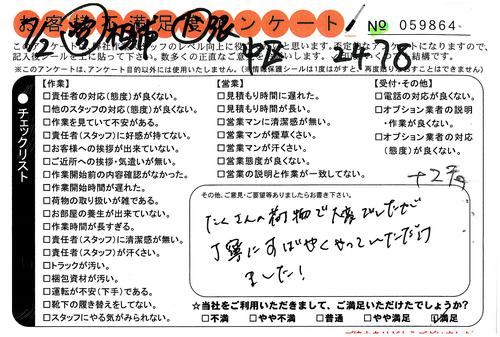 お客様不満足度アンケート!
№ 059864
7/2
2478
このアンケートは
記入後シールを上に貼って下さい。数多くの正直なご意見を
※このアンケートは、アンケート目的以外には使用いたしません。(※情報保護シールは1度はがすと、再度貼りなおすことはできません
●チェックリスト
【作業】
□責任者の対応(態度)が良くない。
□他のスタッフの対応(態度)が良くない。
□作業を見ていて不安がある。
□責任者(スタッフ)に好感が持てない。
□お客様への挨拶が出来ていない。
□ご近所への挨拶・気遣いが無い。
□作業開始前の内容確認がなかった。
□作業開始時間が遅れた。
□荷物の取り扱いが雑である。
□お部屋の養生が出来ていない。
□作業時間が長すぎる。
□責任者(スタッフ)に清潔感が無い。
□責任者(スタッフ)が汗くさい。
□トラックが汚い。
□梱包資材が汚い。
□運転が不安(下手)である。
□靴下の履き替えをしてない。
□スタッフにやる気がみられない。
【営業】
□見積もり時間に遅れた。
□見積もり時間が長い。
□営業マンに清潔感が無い。
□営業マンが煙草くさい。
□営業マンが汗くさい。
□営業態度が良くない。
□営業の説明と作業が一致してない。
【受付・その他】
□電話の対応が良くない。
□オプション業者の説明
・作業が良くない。
□オプション業者の対応
(態度)が良くない。
その他、ご意見・ご要望等ありましたらお書き下さい。
たくさんの荷物で大変でしたが
丁寧にすばやくやっていただけ
ました!
☆当社をご利用いただきまして、ご満足いただけたでしょうか?
□不満 □やや不満 □普通 □やや満足 □満足